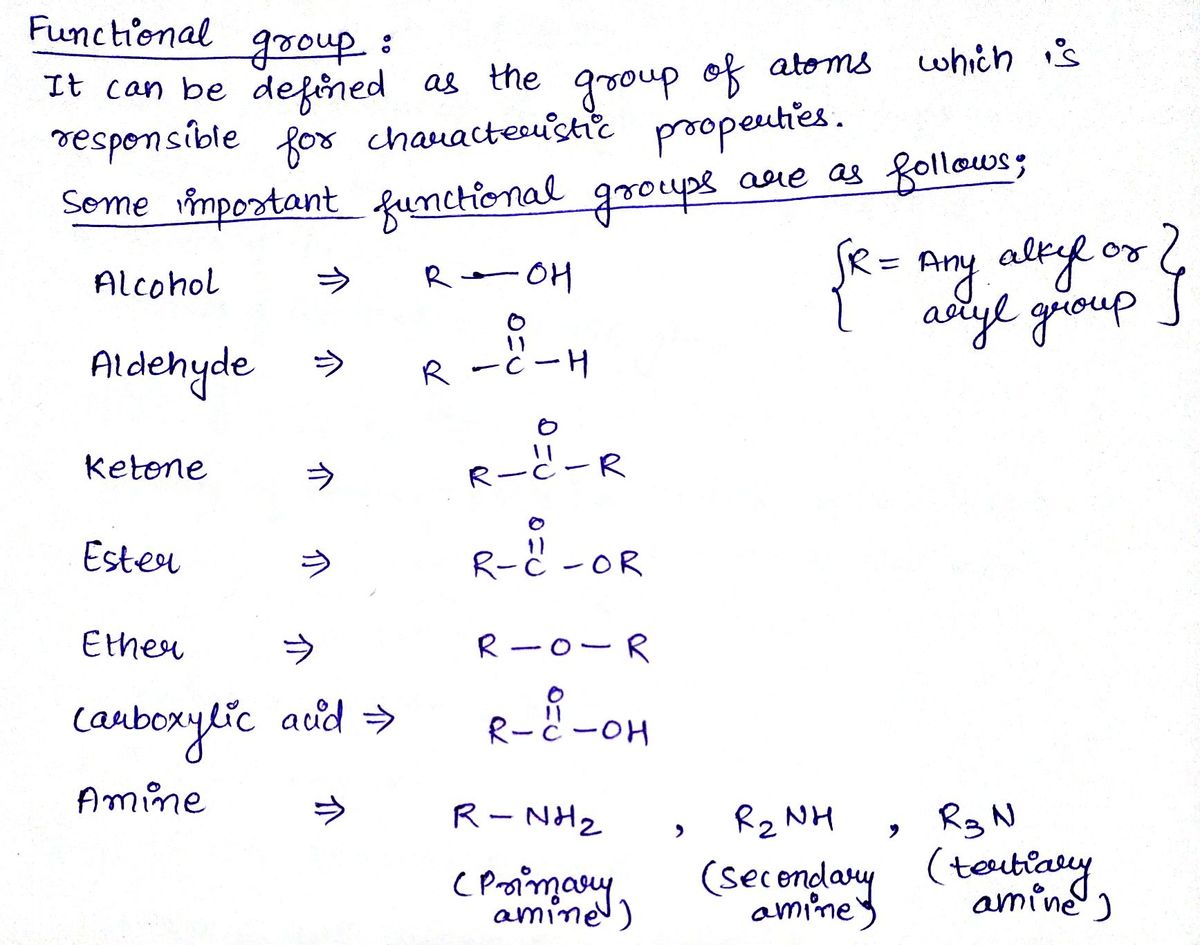 Functional group :
It can be defined as the group of atoms which is
responsible for characteristic properties.
Some important functional groups are as follows;
{R = Any alkyl or
aryl group}
Alcohol ⇒ R — OH
O
||
Aldehyde ⇒ R — C — H
O
||
Ketone ⇒ R — C — R
O
||
Ester ⇒ R — C — OR
Ether ⇒ R — O — R
O
||
Carboxylic acid ⇒ R — C — OH
Amine ⇒ R — NH2 , R2 NH , R3 N
(Primary (secondary (tertiary
amine) amine) amine)